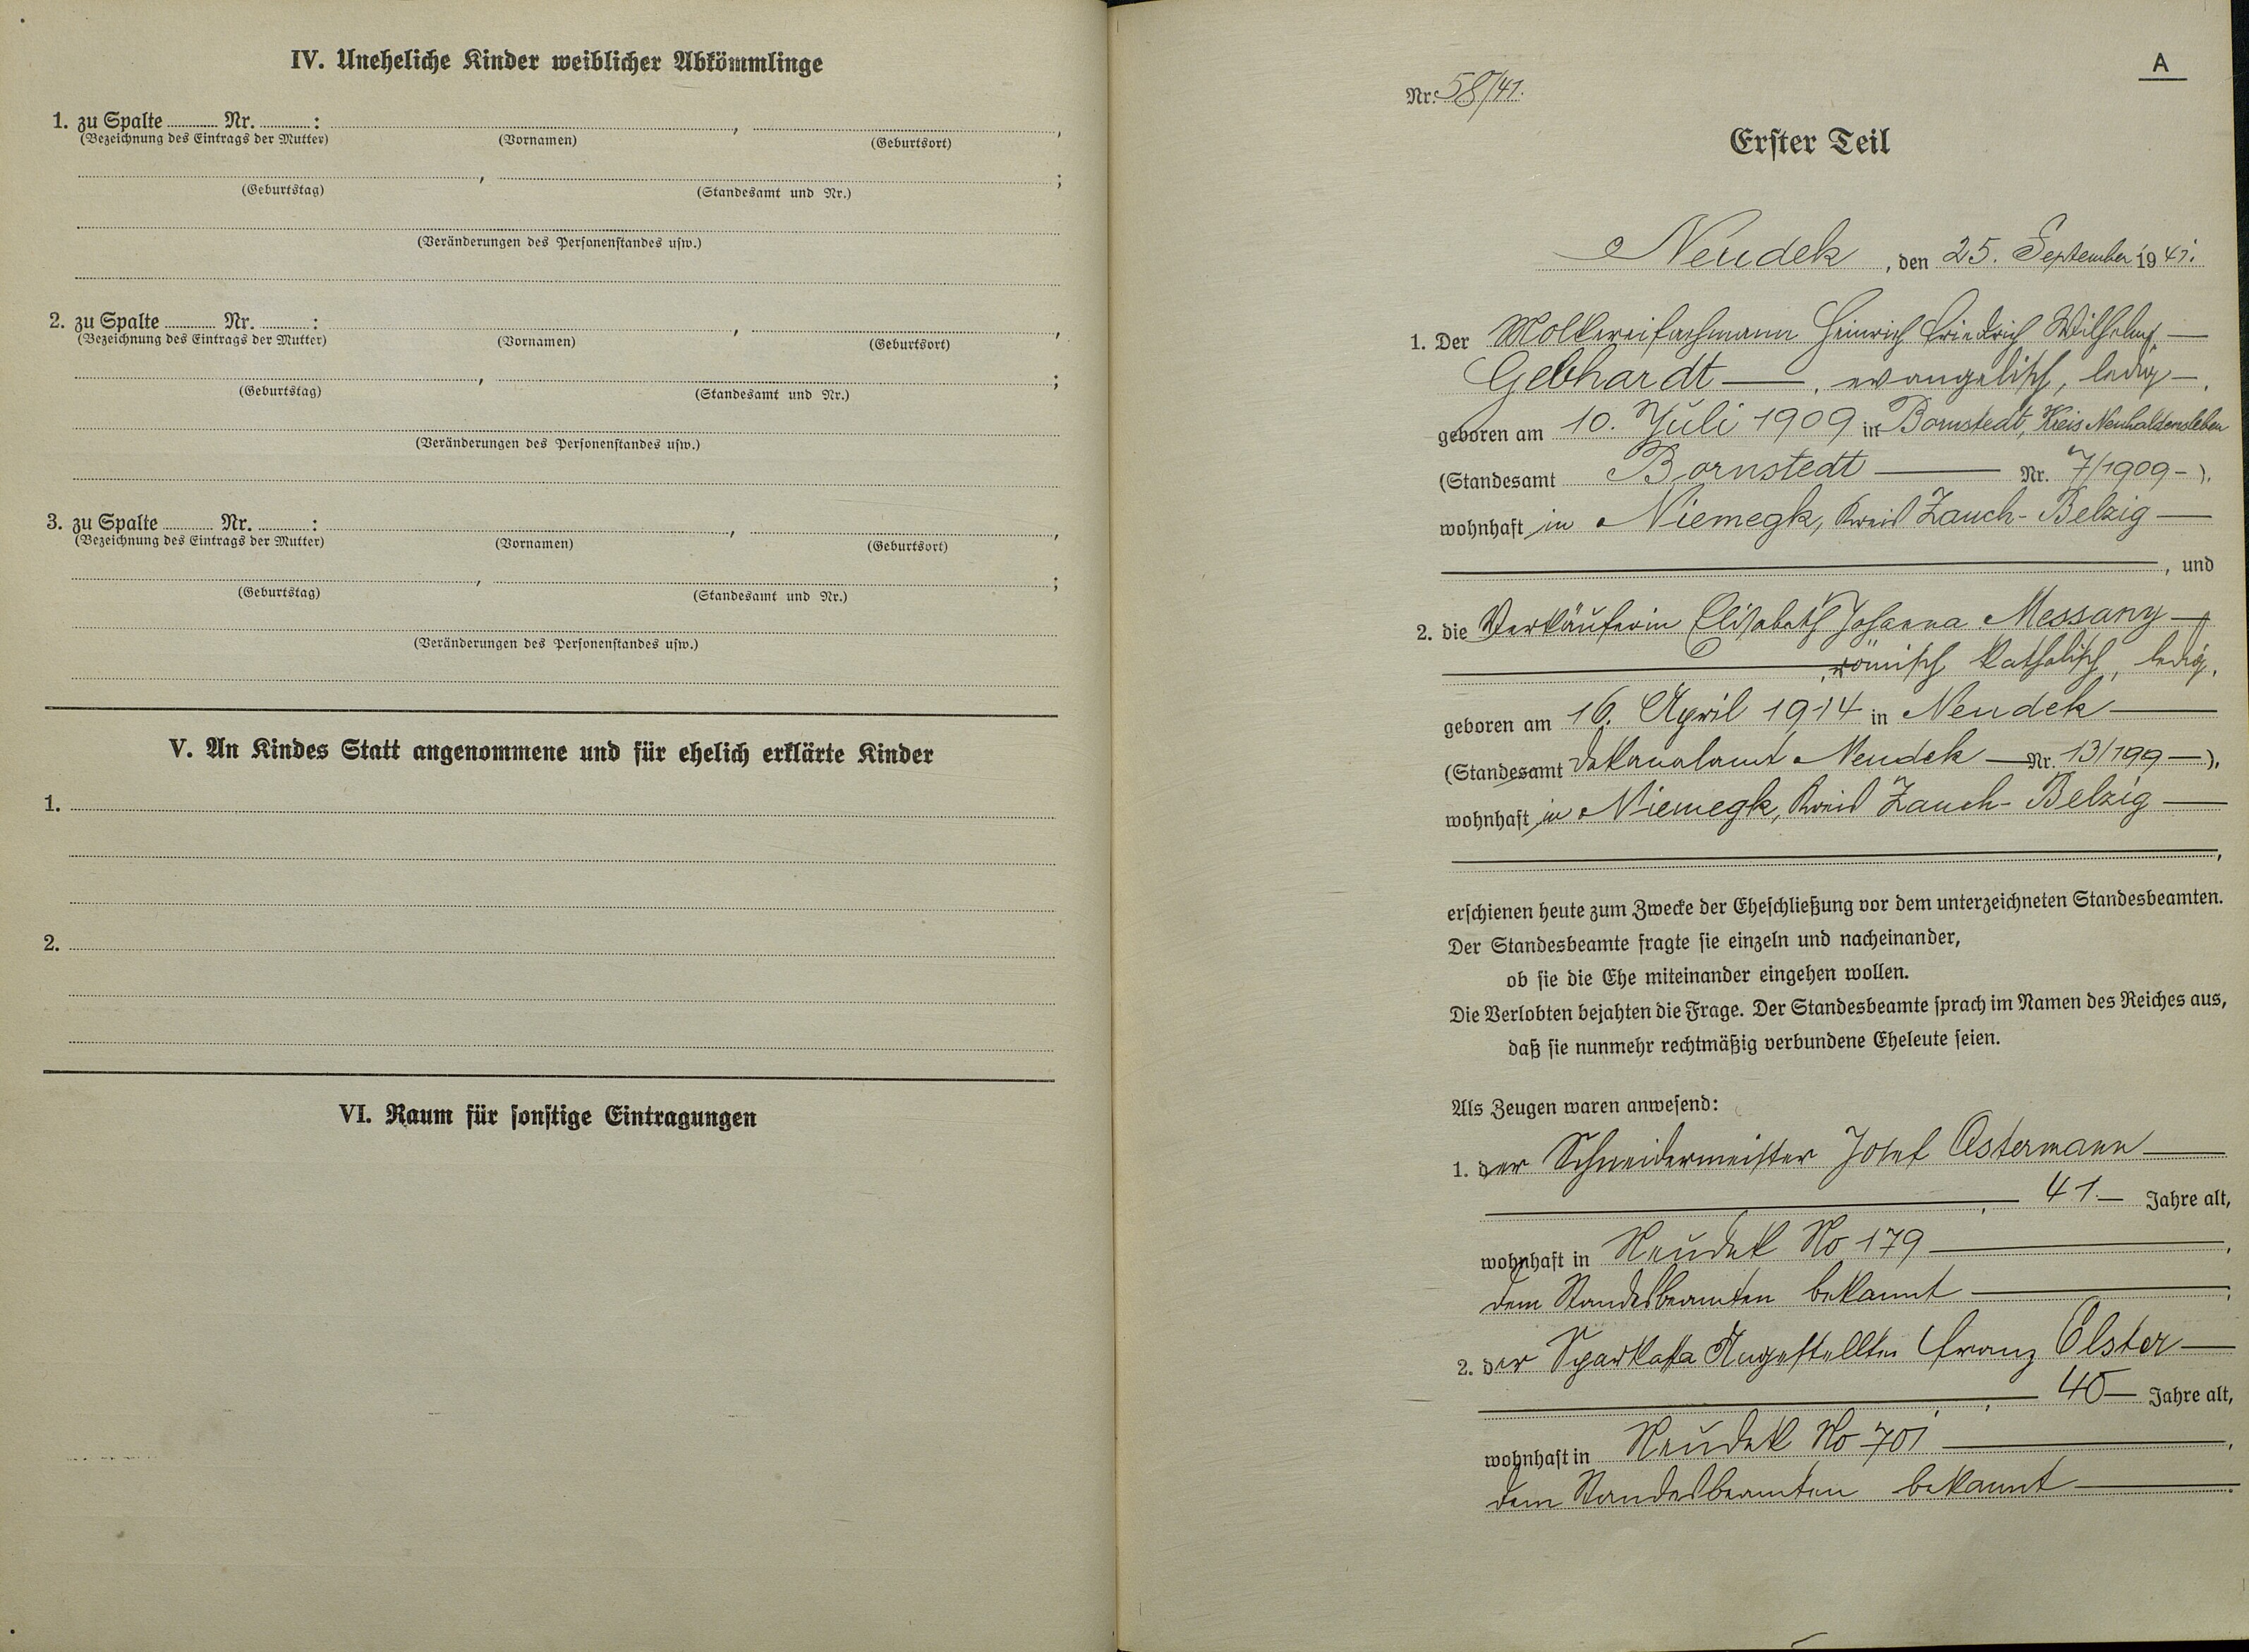 IV. Uneheliche Kinder weiblicher Abkömmlinge
1. zu Spalte Nr. : , ,
(Bezeichnung des Eintrags der Mutter) (Vornamen) (Geburtsort)
, ;
(Geburtstag) (Standesamt und Nr.)
(Veränderungen des Personenstandes usw.)
2. zu Spalte Nr. : , ,
(Bezeichnung des Eintrags der Mutter) (Vornamen) (Geburtsort)
, ;
(Geburtstag) (Standesamt und Nr.)
(Veränderungen des Personenstandes usw.)
3. zu Spalte Nr. : , ,
(Bezeichnung des Eintrags der Mutter) (Vornamen) (Geburtsort)
, ;
(Geburtstag) (Standesamt und Nr.)
(Veränderungen des Personenstandes usw.)
V. An Kindes Statt angenommene und für ehelich erklärte Kinder
1.
2.
VI. Raum für sonstige Eintragungen
A
Nr. 58/41.
Erster Teil
Neudek, den 25. September 1941.
1. Der Molkereifachmann Heinrich Friedrich Wilhelm —
Gebhardt —, evangelisch, ledig —,
geboren am 10. Juli 1909 in Bornstedt, Kreis Neuhaldensleben
(Standesamt Bornstedt — Nr. 7/1909 –),
wohnhaft in Niemegk, Kreis Zauch-Belzig —
—, und
2. die Verkäuferin Elisabeth Johanna Messany —
—, römisch katholisch, ledig,
geboren am 16. April 1914 in Neudek —
(Standesamt Dekanalamt Neudek — Nr. 13/199 —),
wohnhaft in Niemegk, Kreis Zauch-Belzig —
—,
erschienen heute zum Zwecke der Eheschließung vor dem unterzeichneten Standesbeamten.
Der Standesbeamte fragte sie einzeln und nacheinander,
ob sie die Ehe miteinander eingehen wollen.
Die Verlobten bejahten die Frage. Der Standesbeamte sprach im Namen des Reiches aus,
daß sie nunmehr rechtmäßig verbundene Eheleute seien.
Als Zeugen waren anwesend:
1. der Schneidermeister Josef Ostermann —
—, 41 — Jahre alt,
wohnhaft in Neudek No 179 —,
dem Standesbeamten bekannt —;
2. der Sparkasse Angestellte Franz Elster —
—, 40 — Jahre alt,
wohnhaft in Neudek No 701 —,
dem Standesbeamten bekannt —.